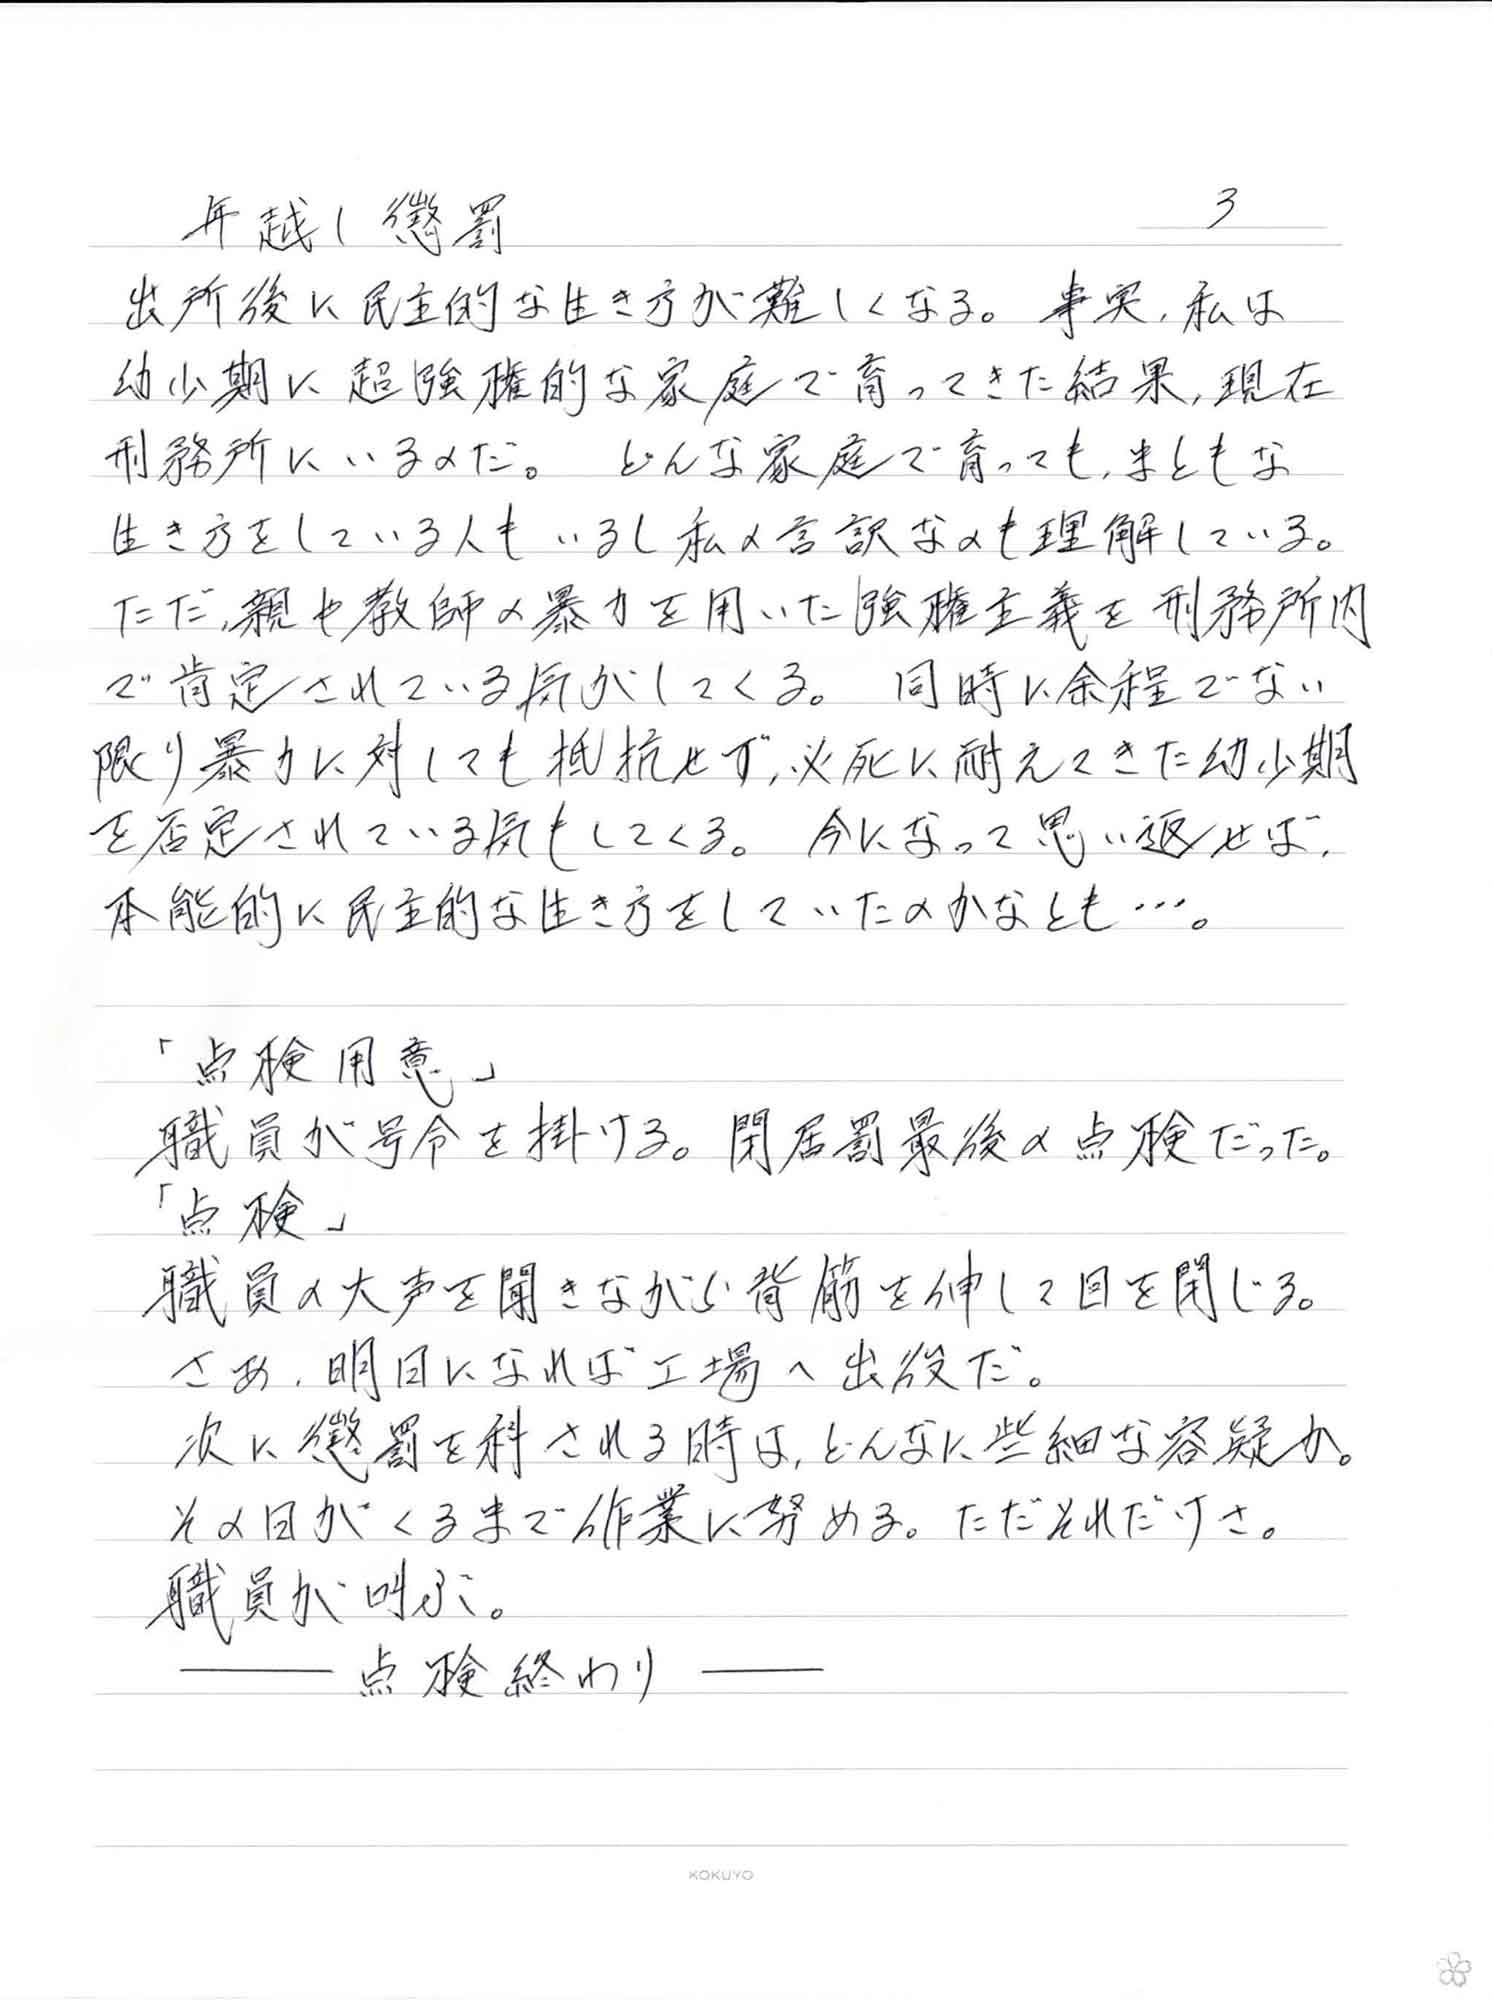 年越し懲罰
3
出所後に民主的な生き方が難しくなる。事実、私は
幼少期に超強権的な家庭で育ってきた結果、現在
刑務所にいるのだ。どんな家庭で育っても、まともな
生き方をしている人もいるし私の言訳なのも理解している。
ただ、親や教師の暴力を用いた強権主義を刑務所内
で肯定されている気がしてくる。同時に余程でない
限り暴力に対しても抵抗せず、必死に耐えてきた幼少期
を否定されている気もしてくる。今になって思い返せば、
本能的に民主的な生き方をしていたのかなとも…。
「点検用意」
職員が号令を掛ける。閉居罰最後の点検だった。
「点検」
職員の大声を聞きながら背筋を伸して目を閉じる。
さあ、明日になれば工場へ出役だ。
次に懲罰を科される時は、どんなに些細な容疑か。
その日がくるまで作業に努める。ただそれだけさ。
職員が叫ぶ。
――点検終わり――
KOKUYO